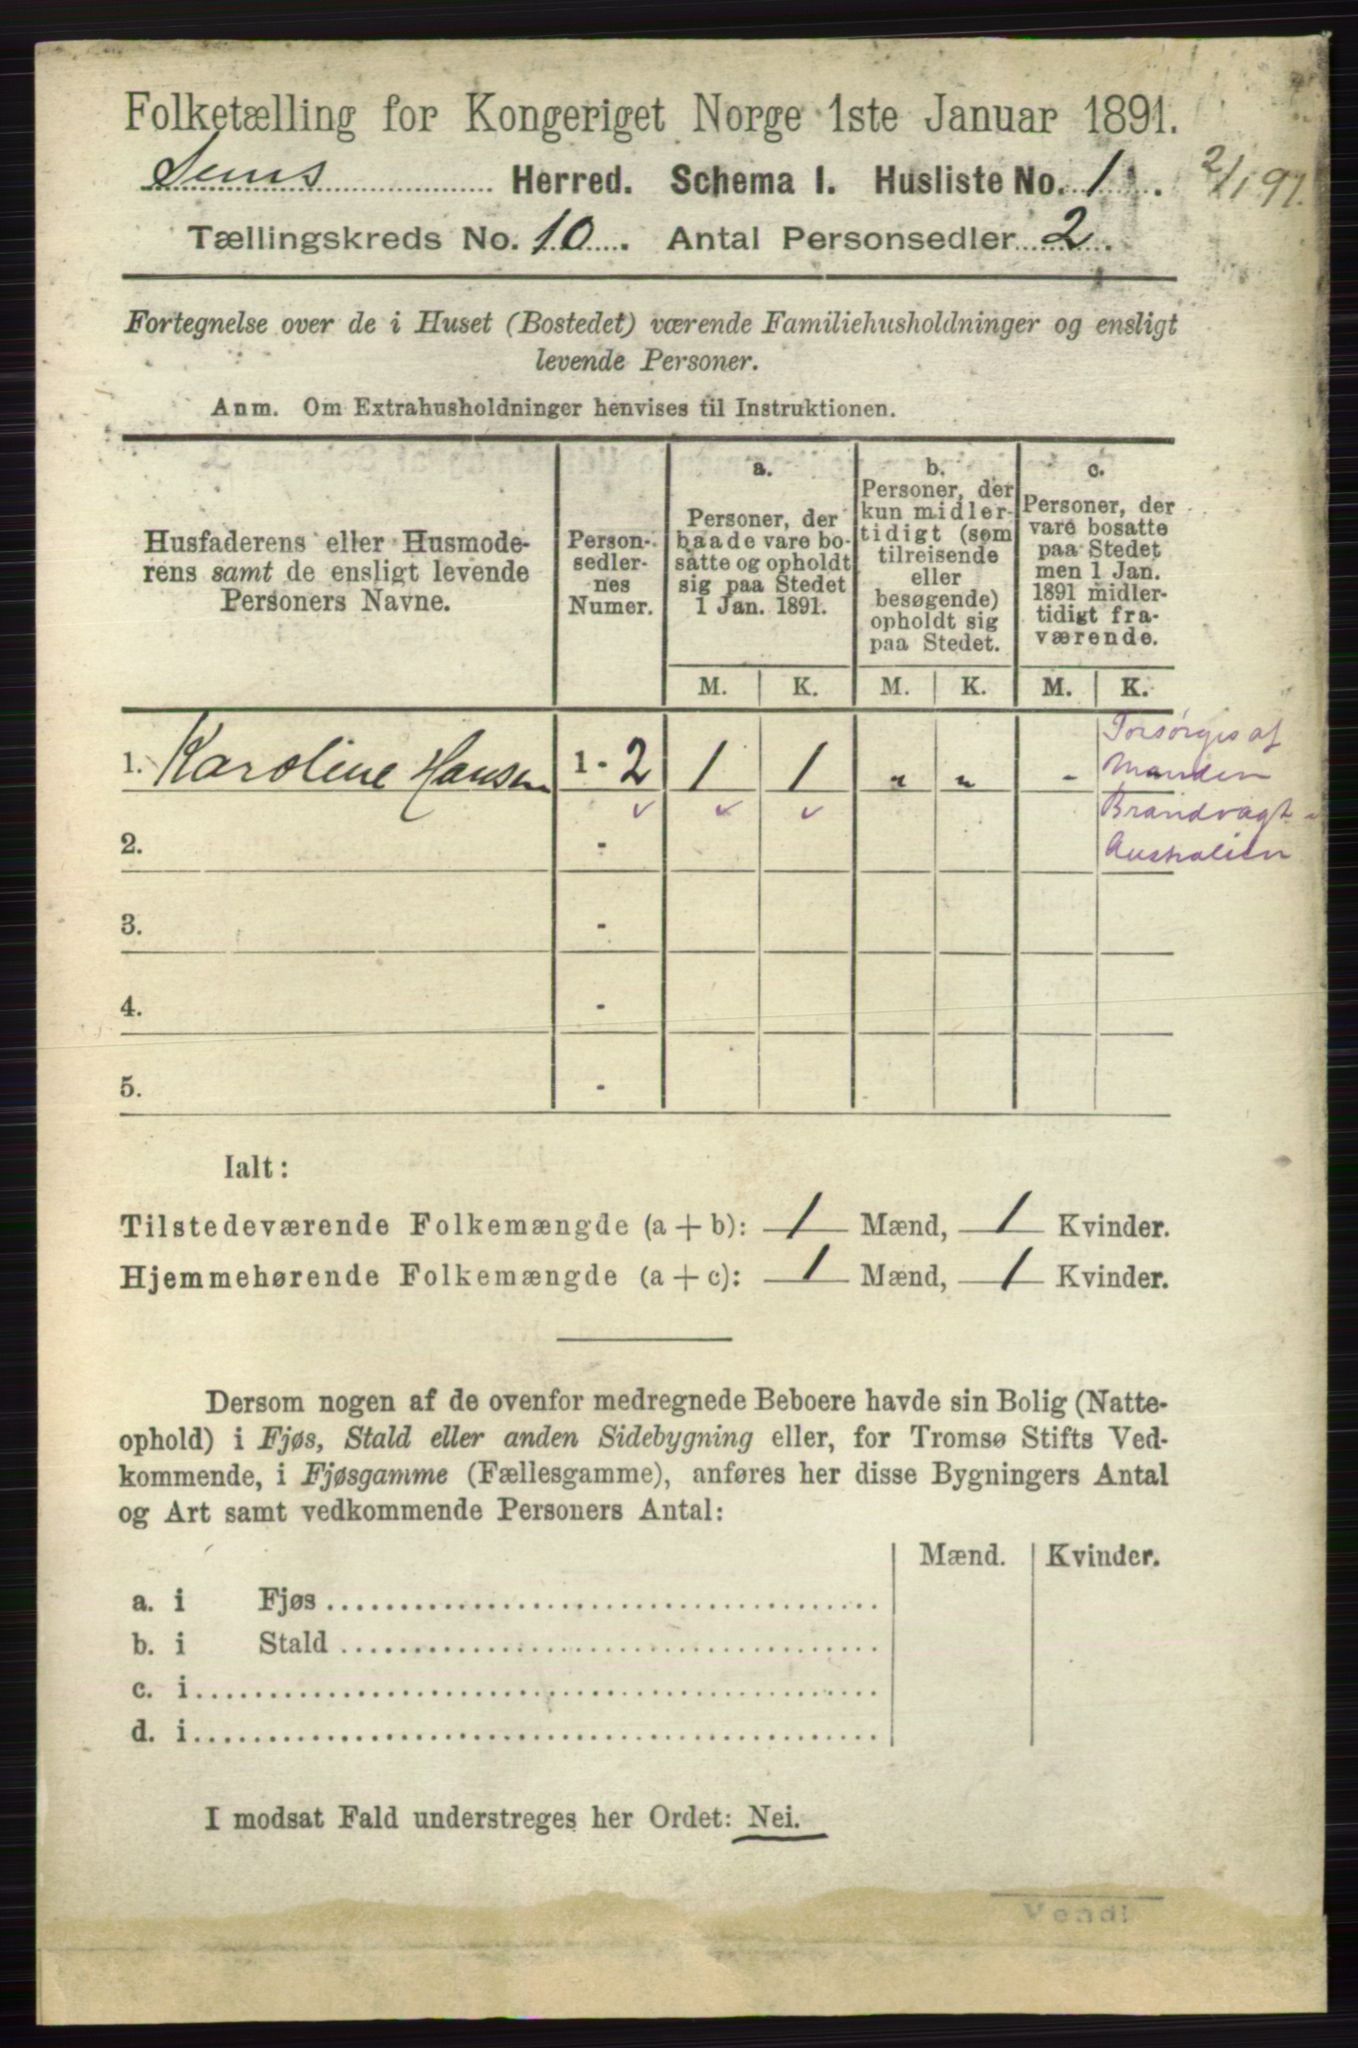 Folketælling for Kongeriget Norge 1ste Januar 1891.
Sems Herred. Schema I. Husliste No. 1. 2/1 91.
Tællingskreds No. 10. Antal Personsedler 2.
Fortegnelse over de i Huset (Bostedet) værende Familiehusholdninger og ensligt
levende Personer.
Anm. Om Extrahusholdninger henvises til Instruktionen.
Husfaderens eller Husmode-
rens samt de ensligt levende
Personers Navne.
Person-
sedler-
nes
Numer.
a.
Personer, der
baade vare bo-
satte og opholdt
sig paa Stedet
1 Jan. 1891.
b.
Personer, der
kun midler-
tidigt (som
tilreisende
eller
besøgende)
opholdt sig
paa Stedet.
c.
Personer, der
vare bosatte
paa Stedet
men 1 Jan.
1891 midler-
tidigt fra-
værende.
M. K. M. K. M. K.
1. Karoline Hansen 1 - 2 1 1 „ „ -
Forsørges af
Manden
Brandvagt -
Australien
2. -
3. -
4. -
5. -
Ialt:
Tilstedeværende Folkemængde (a + b): 1 Mænd, 1 Kvinder.
Hjemmehørende Folkemængde (a + c): 1 Mænd, 1 Kvinder.
Dersom nogen af de ovenfor medregnede Beboere havde sin Bolig (Natte-
ophold) i Fjøs, Stald eller anden Sidebygning eller, for Tromsø Stifts Ved-
kommende, i Fjøsgamme (Fællesgamme), anføres her disse Bygningers Antal
og Art samt vedkommende Personers Antal:
Mænd. Kvinder.
a. i Fjøs
b. i Stald
c. i
d. i
I modsat Fald understreges her Ordet: Nei.
Vend!